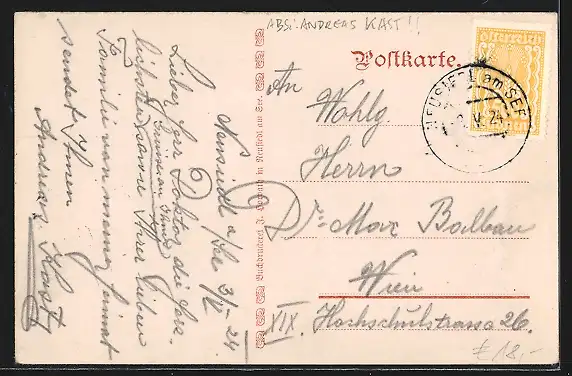 ABS: ANDREAS KAST!!
Postkarte.
Österreich
NEUSIEDL am SEE
V 24
An
Wohlg
Herrn
Dr. Max Balban
Wien
XIX. Hochschulstrasse 26.
€ 18,-
Buchdruckerei J. in Neusiedl am See.
Neusiedl a/See 3/V 24
Lieber Herr Doktor die herz-
lichsten Grüsse an Ihre lieben
Familie von meiner Heimat
sendet Ihnen
Andreas Kast